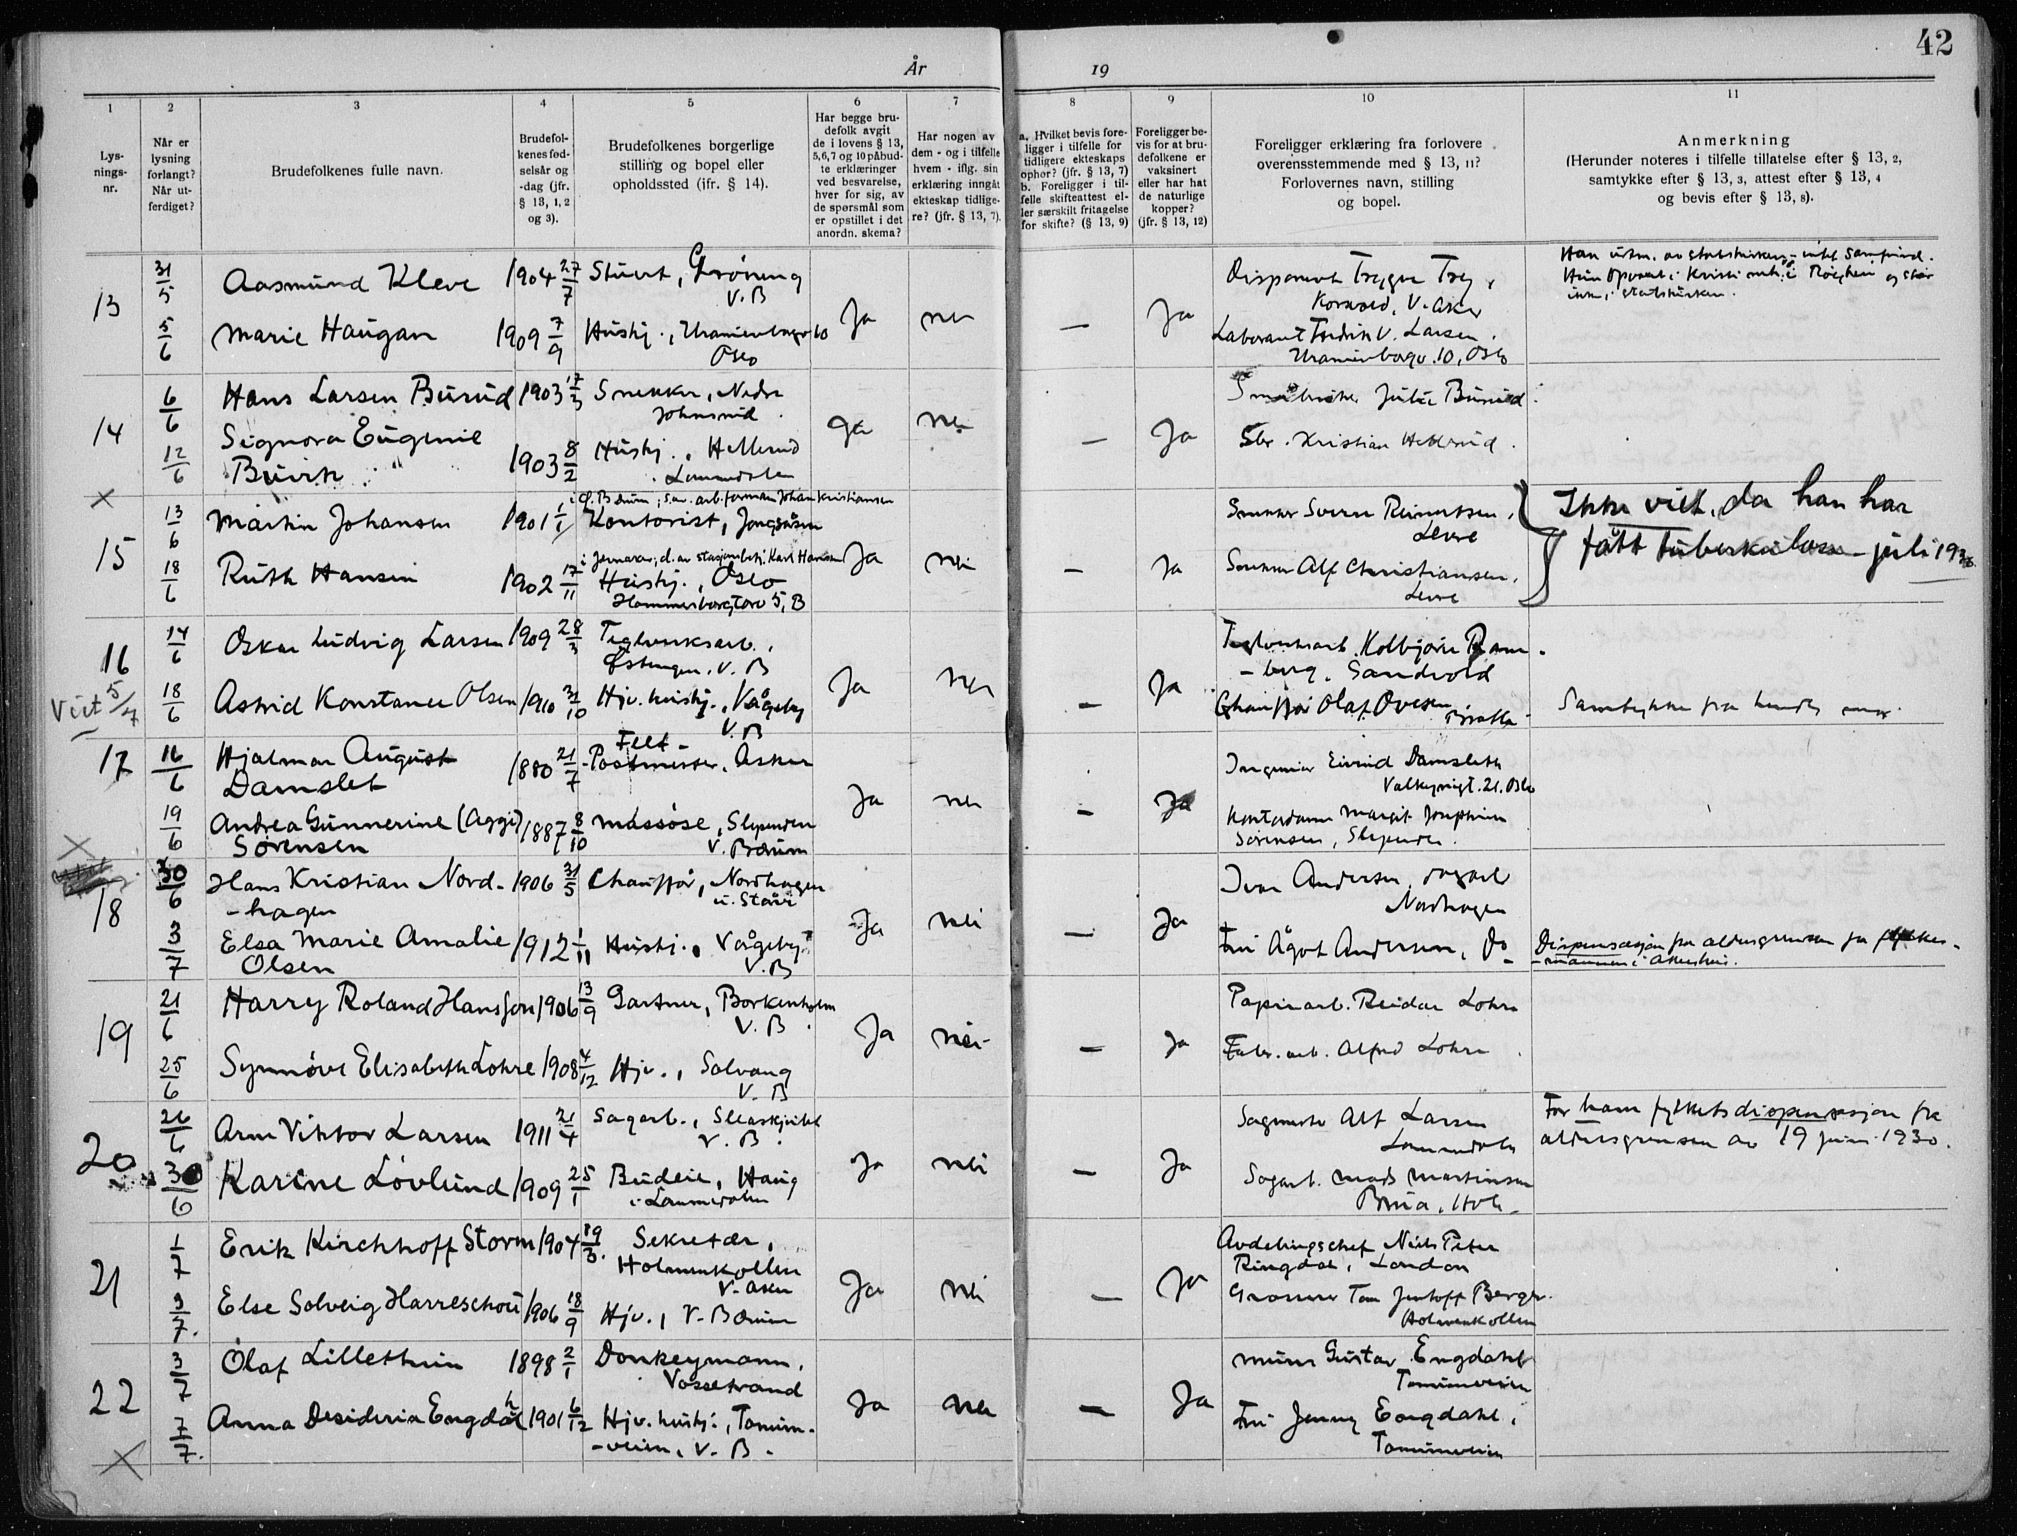 42
År 19
1 2 3 4 5 6 7 8 9 10 11
Lys-
nings-
nr.
Når er
lysning
forlangt?
Når ut-
ferdiget?
Brudefolkenes fulle navn.
Brudefol-
kenes fød-
selsår og
-dag (jfr.
§ 13, 1, 2
og 3).
Brudefolkenes borgerlige
stilling og bopel eller
opholdssted (jfr. § 14).
Har begge bru-
defolk avgit
de i lovens § 13,
5,6,7 og 10 påbud-
te erklæringer
ved besvarelse,
hver for sig, av
de spørsmål som
er opstillet i det
anordn. skema?
Har nogen av
dem - og i tilfelle
hvem - iflg. sin
erklæring inngått
ekteskap tidlige-
re? (jfr. § 13, 7).
a. Hvilket bevis fore-
ligger i tilfelle for
tidligere ekteskaps
ophør? (jfr. § 13, 7)
b. Foreligger i til-
felle skifteattest el-
ler særskilt fritagelse
for skifte? (§ 13, 9)
Foreligger be-
vis for at bru-
defolkene er
vaksinert
eller har hat
de naturlige
kopper?
(jfr. § 13, 12)
Foreligger erklæring fra forlovere
overensstemmende med § 13, 11?
Forlovernes navn, stilling
og bopel.
Anmerkning
(Herunder noteres i tilfelle tillatelse efter § 13, 2,
samtykke efter § 13, 3, attest efter § 13, 4
og bevis efter § 13, 8).
13 31/5 Aasmund Kleve 1904 27/7 Stuert, Grøneng
V. B
Ja nei — Ja
Disponent Trygve
V. Aker
5/6 Marie Haugan 1909 7/9 Hushj., Uranienborgv 10
Oslo
Laborant Fredrik V. Larsen,
Uranienborgv. 10, Oslo
14 6/6 Hans Larsen Burud 1903 17/3 Snekker, Nedre
Johnsrud
Ja nei — Ja
Burud
12/6 Signora Eugenie
Buvik 1903 8/2 Hushj., Hellerud
Lommedalen
Kristian Hellerud
× 15 13/6 Martin Johansen 1901 1/1 Kontorist, Jongsåsen
i Ø. Bærum, s. av arb.forman Johan Kristiansen
Ja nei — Ja
Snekker Sverre Reinertsen,
Levre
Ikke viet, da han har
fått tuberkulose – juli 193
18/6 Ruth Hansen 1902 17/11 Hushj., Oslo
Hammersborgtorv 5, B
Snekker Alf Christiansen,
Levre
16 14/6 Oskar Ludvig Larsen 1909 28/3 Teglverksarb.,
Østengen, V. B
Ja nei — Ja
Teglverksarb. Kolbjørn Ram-
-berg, Sandvold
Viet 5/7 18/6 Astrid Konstance Olsen 1910 31/10 Hjv. hushj., Vågeby
V. B
Chauffør Olaf Ovesen
Samtykke fra hendes mor.
17 16/6 Hjalmar August
Damslet 1880 21/7 Felt-
-Postmester, Asker
Ja nei — Ja
Ingeniør Eivind Damsleth
Valkyriegt. 21. Oslo
19/6 Andrea Gunnerine (Aggi)
Sørensen 1887 8/10 Massøse, Slependen
V. Bærum
Kontordame Margit Josephine
Sørensen, Slependen.
×
18 30/6 Hans Kristian Nord-
-hagen 1906 31/5 Chauffør, Nordhagen
u. Stävi
Ja nei — Ja
Ivar Andersen
Nordhagen
3/7 Elsa Marie Amalie
Olsen 1912 1/11 Hushj., Vågeby
V. B
Fru Ågot Andersen, Do
Dispensasjon fra aldersgrensen fra fylkes-
-mannen i Akershus.
19 21/6 Harry Roland Hansson 1906 13/9 Gartner, Borkenholm
V. B.
Ja nei — Ja
Papirarb. Reidar Lohre
25/6 Synnøve Elisabeth Lohre 1908 4/12 Hjv., Solvang
V. B
Fabr. arb. Alfred Lohre
20 26/6 Arne Viktor Larsen 1911 21/4 Sagarb.,
V. B.
Ja nei — Ja
Sagmester Alf Larsen
Lommedalen
For ham fylkets dispensasjon fra
aldersgrensen av 19 juni 1930.
30/6 Karine Løvlund 1909 25/1 Budeie, Haug
i Lommedalen
Sagarb. Mads Martinsen
Brua, Hole
21 1/7 Erik Kirchhoff Storm 1904 19/3. Sekretær,
Holmenkollen
V. Aker
Ja nei — Ja
Avdelingschef Niels Peter
Ringdal, London
3/7. Else Solveig Harreschou 1906 18/9 Hjv., V. Bærum
Grosserer Tom Berger
Holmenkollen
22 3/7 Olaf Lillethun 1898 2/1 Donkeymann,
Vossestrand
Ja nei — Ja
Murer Gustav Engdahl
Tanumveien
7/7. Anna Desideria Engdahl 1901 6/12 Hjv. hushj., Tanum-
-veien, V. B.
Fru Jenny Engdahl,
Tanumveien
×